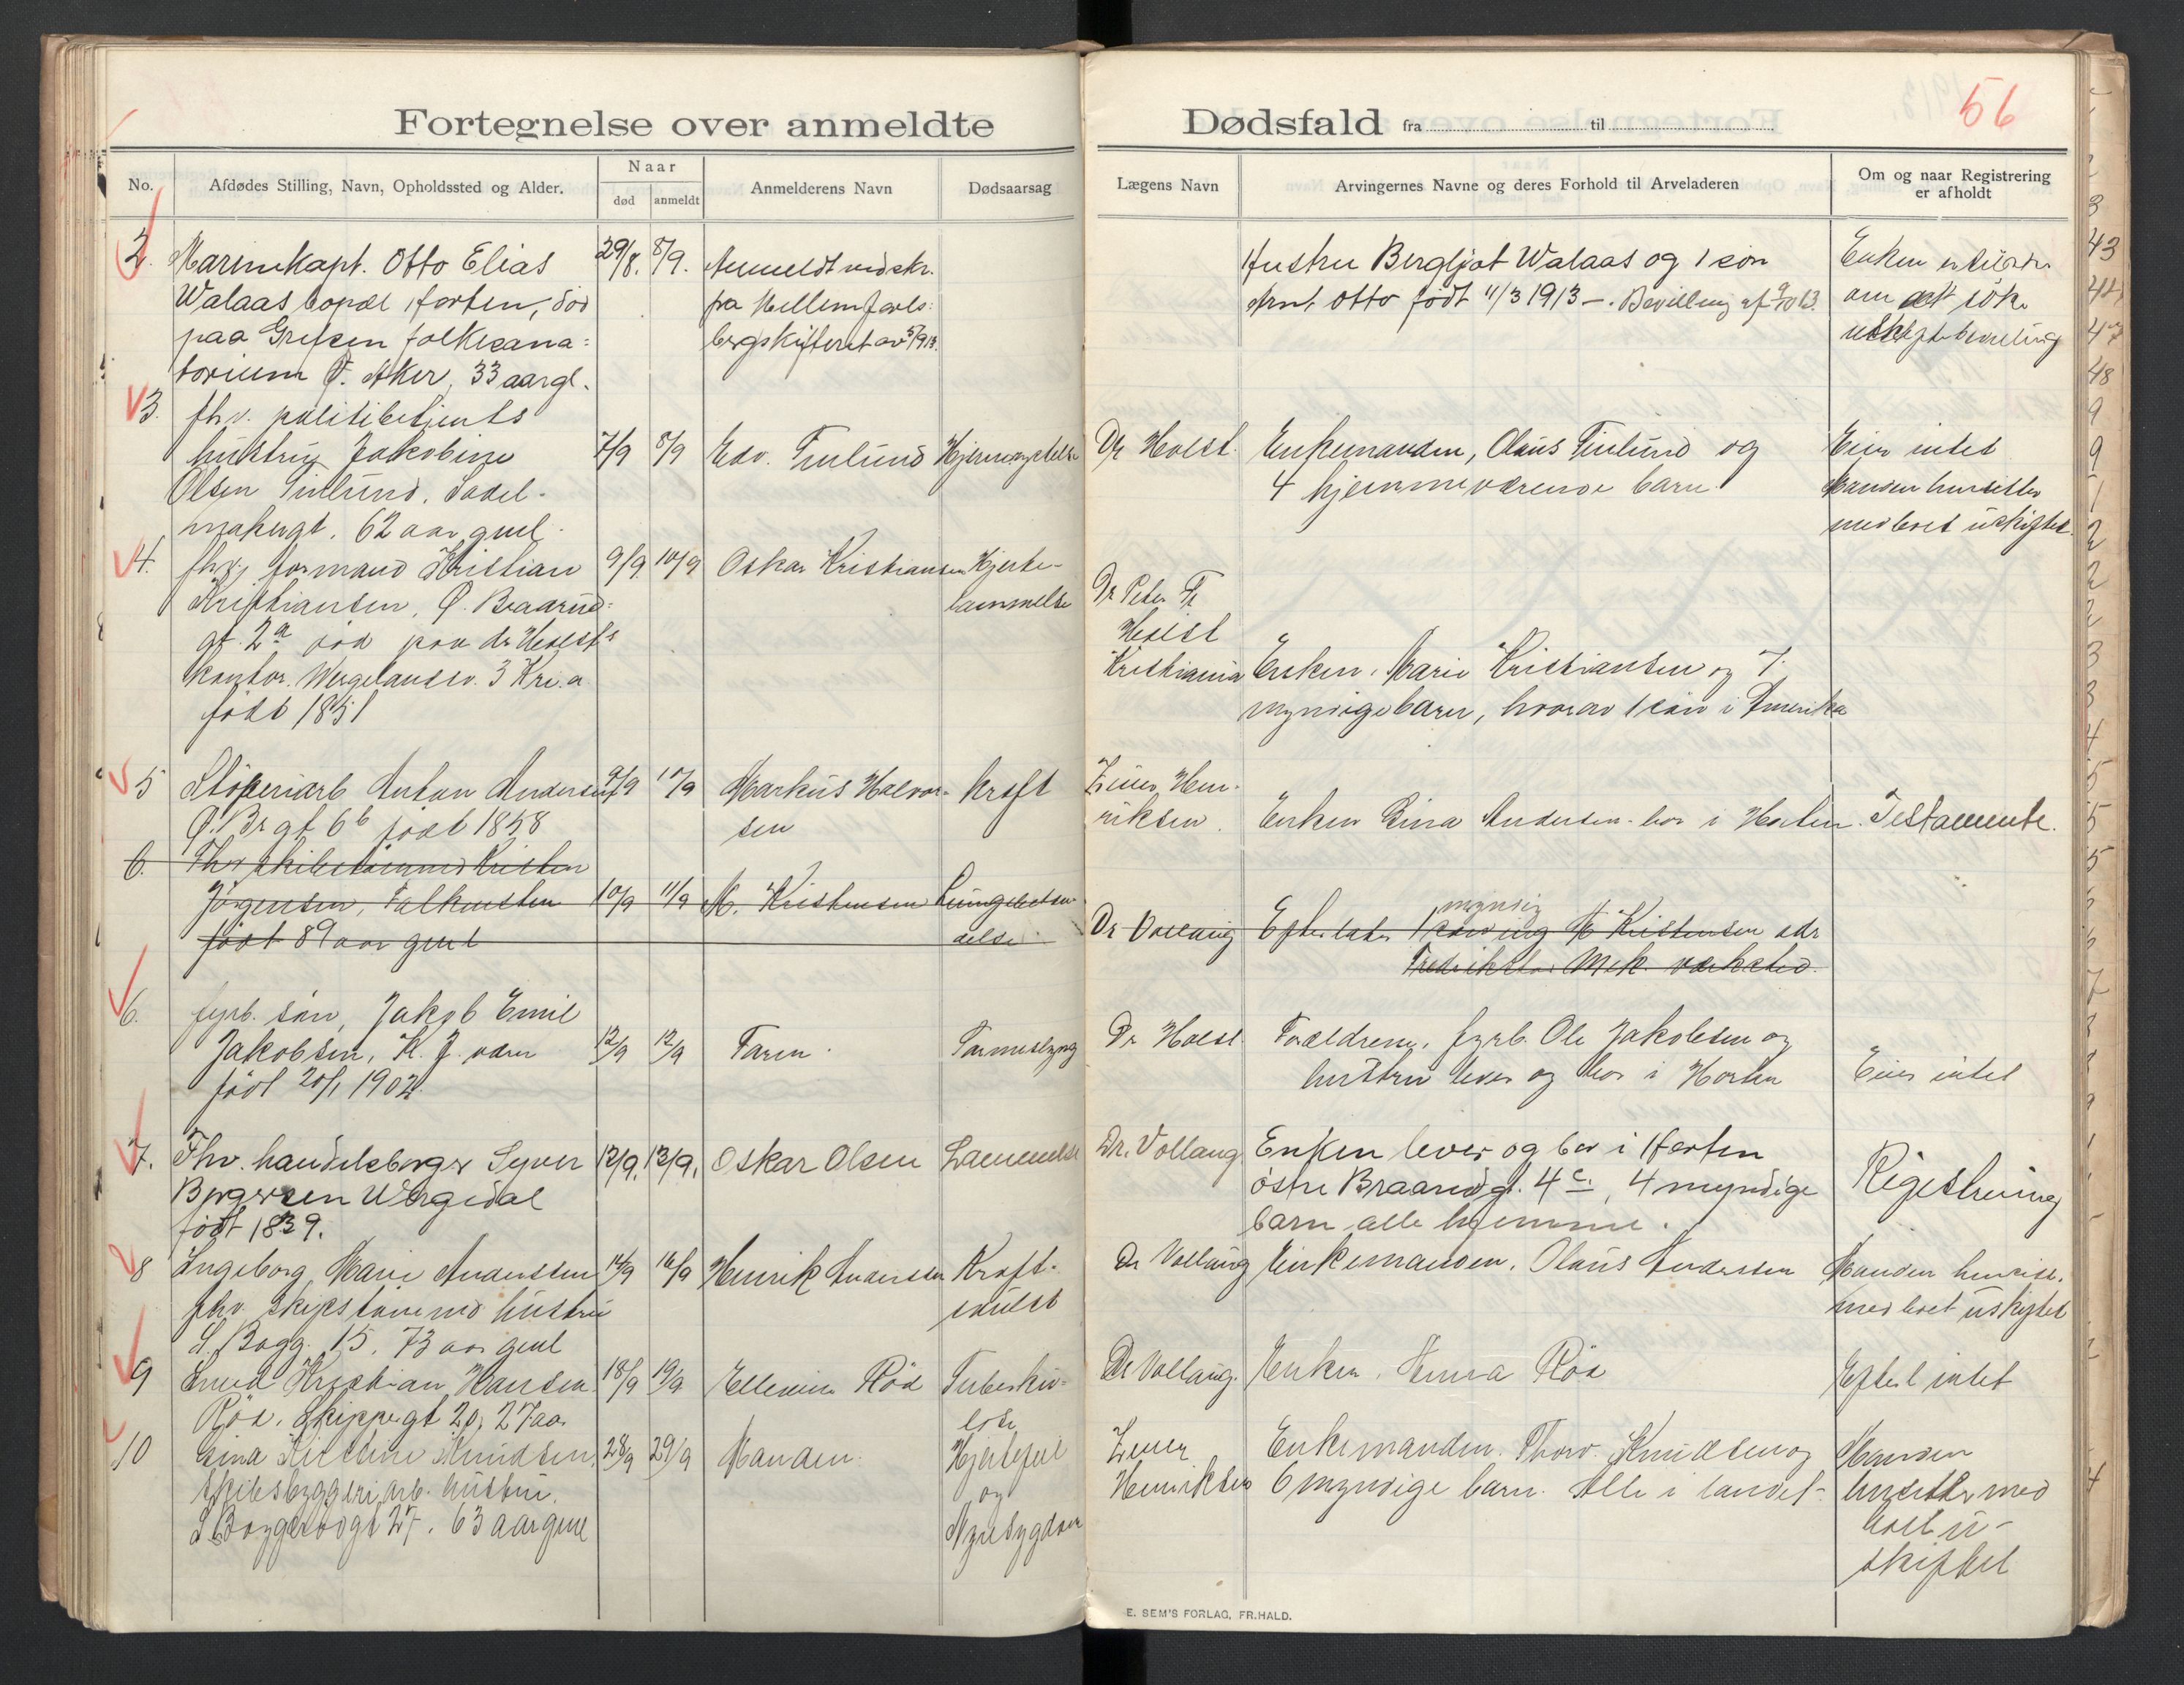 Fortegnelse over anmeldte
Dødsfald fra til
56
No.
Afdødes Stilling, Navn, Opholdssted og Alder.
Naar
død
anmeldt
Anmelderens Navn
Dødsaarsag
Lægens Navn
Arvingernes Navne og deres Forhold til Arveladeren
Om og naar Registrering
er afholdt
2. Marinekapt. Otto Elias 29/8. 8/9. Anmeldt ved skr.
Walaas bopæl Horten, død fra Mellem Jarls-
paa Grefsen folkesana- bergskifteret av 5/9 13.
torium Ø. Aker, 33 aar gl.
Hustru Bergljot Walaas og 1 søn
Arnt Otto født 11/3 1913 -. Bevilling af 9/10 13.
Enken
om at søke
3. fhv. politibetjents
hustru Jakobine 7/9 8/9 Edv. Finlund
Olsen Finlund. Sadel-
makergt. 62 aar gml.
Dr Holst. Enkemanden, Olaus Finlund og
4 hjemmeværende barn
Eier intet
Manden hensitter
med boet uskiftet.
4. fhv. formand Kristian 9/9 10/9 Oskar Kristiansen Hjerte-
Kristiansen, Ø. Braarud- lammelse
gt. 2a død paa dr Holsts
kontor. Wergelandsv. 3 Kr.a
født 1851
Dr Peter F
Holst
Kristiania Enken, Marie Kristiansen og 7
myndige barn, hvorav 1 søn i Amerika
5 Støperiarb Anton Andersen 9/9 10/9 Markus Halvor- Kræft
Ø. Br gt 6b født 1858 sen
Einer Hen-
riksen. Enken Gina Andersen bor i Horten. Testamente.
6. Fhv skibstømmerm Kristen
Jørgensen, Falkensten 10/9 11/9 M. Kristensen Lungebetæn-
født 89 aar gml delse
myndig
Dr Vollaug Efterlater 1 søn ing M Kristensen adr
Fredrikstad Mek. værksted.
6. fyrb. søn, Jakob Emil
Jakobsen, K. J. værn 12/9 12/9 Faren. Tarmslyng
født 20/1 1902
Dr Holst Forældrene, fyrb. Ole Jakobsen og
hustru lever og bor i Horten Eier intet
7. Fhv. handelsborger Syver 12/9. 13/9. Oskar Olsen Lammelse
Børgersen Wergedal
født 1839.
Dr. Vollaug Enken lever og bor i Horten
østre Braarudgt. 4c, 4 myndige
barn alle hjemme.
Registrering
8 Ingeborg Marie Andersen 14/9 16/9 Henrik Andersen Kræft-
fhv. skipstømmerm hustru svulst
S. Bogg. 15. 73 aar gml
Dr Vollaug Enkemanden, Olaus Andersen Manden hensit.
med boet uskiftet
9 Kristian Hansen 18/9 19/9 Ellevine Röd Tuberku-
Röd. Skippergt 20, 27 aar lose
Dr Vollaug. Enken, Anna Röd Efterl intet
10 Gina Kirstine Knudsen 28/9 29/9 Manden. Hjertefeil
skibsbyggeriarb. hustru. og
S Boggerodgt 27. 63 aar gml Nyresygdom
Einer Enkemanden. Thorv. Knudsen og Manden
Henriksen 6 myndige barn. Alle i landet- hensitter med
boet u-
skiftet
E. SEM'S FORLAG, FR.HALD.